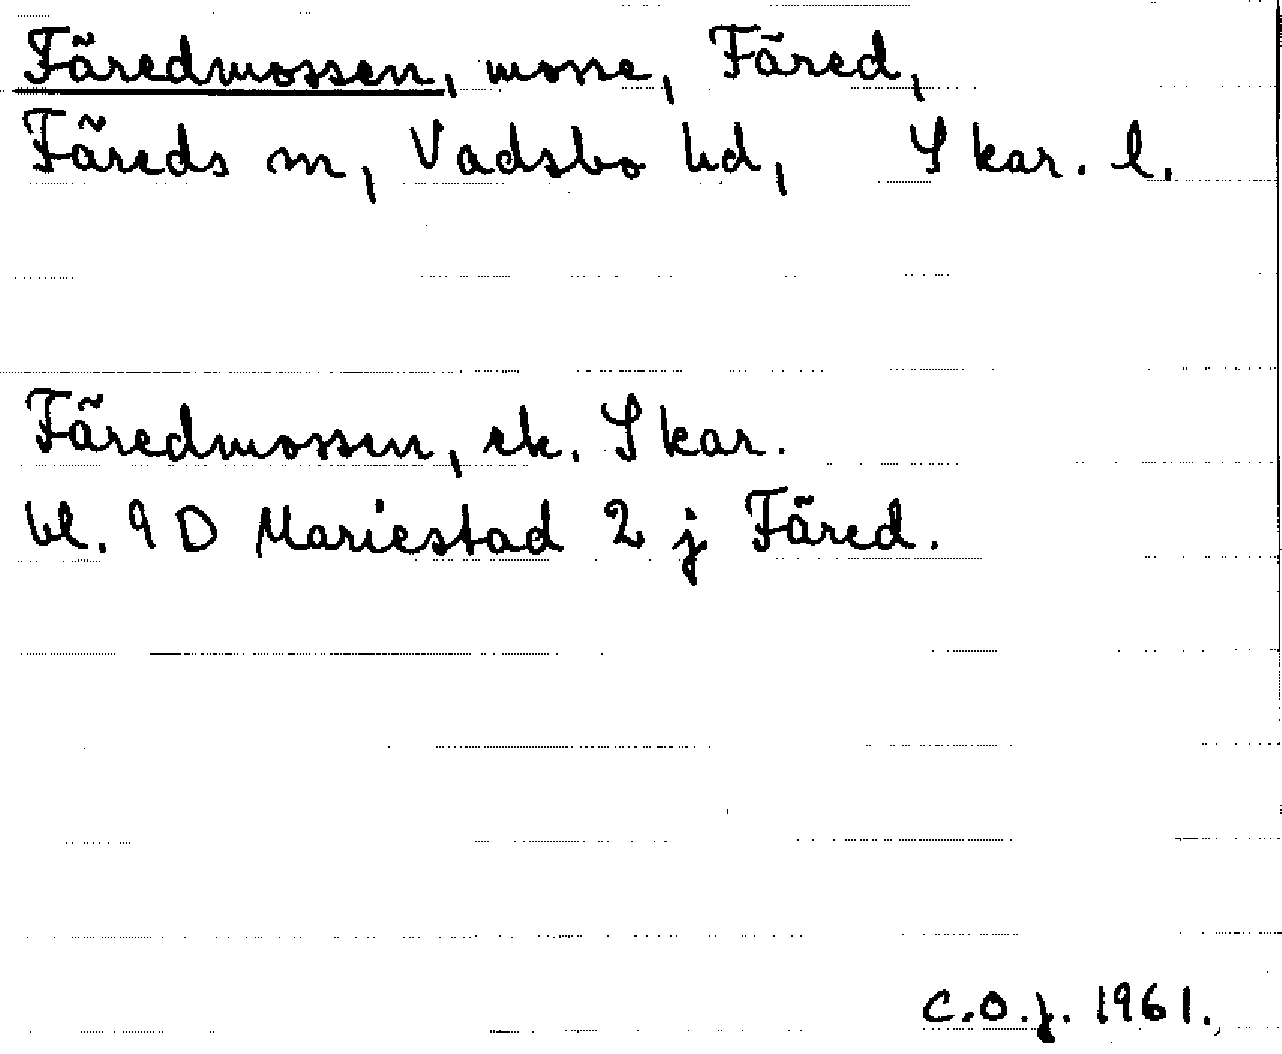 Färedmossen, mosse, Färed,
Färeds sn, Vadsbo hd, Skar. l.
Färedmossen, ek. Skar.
bl. 9 D Mariestad 2 j Färed.
C.O.J. 1961.